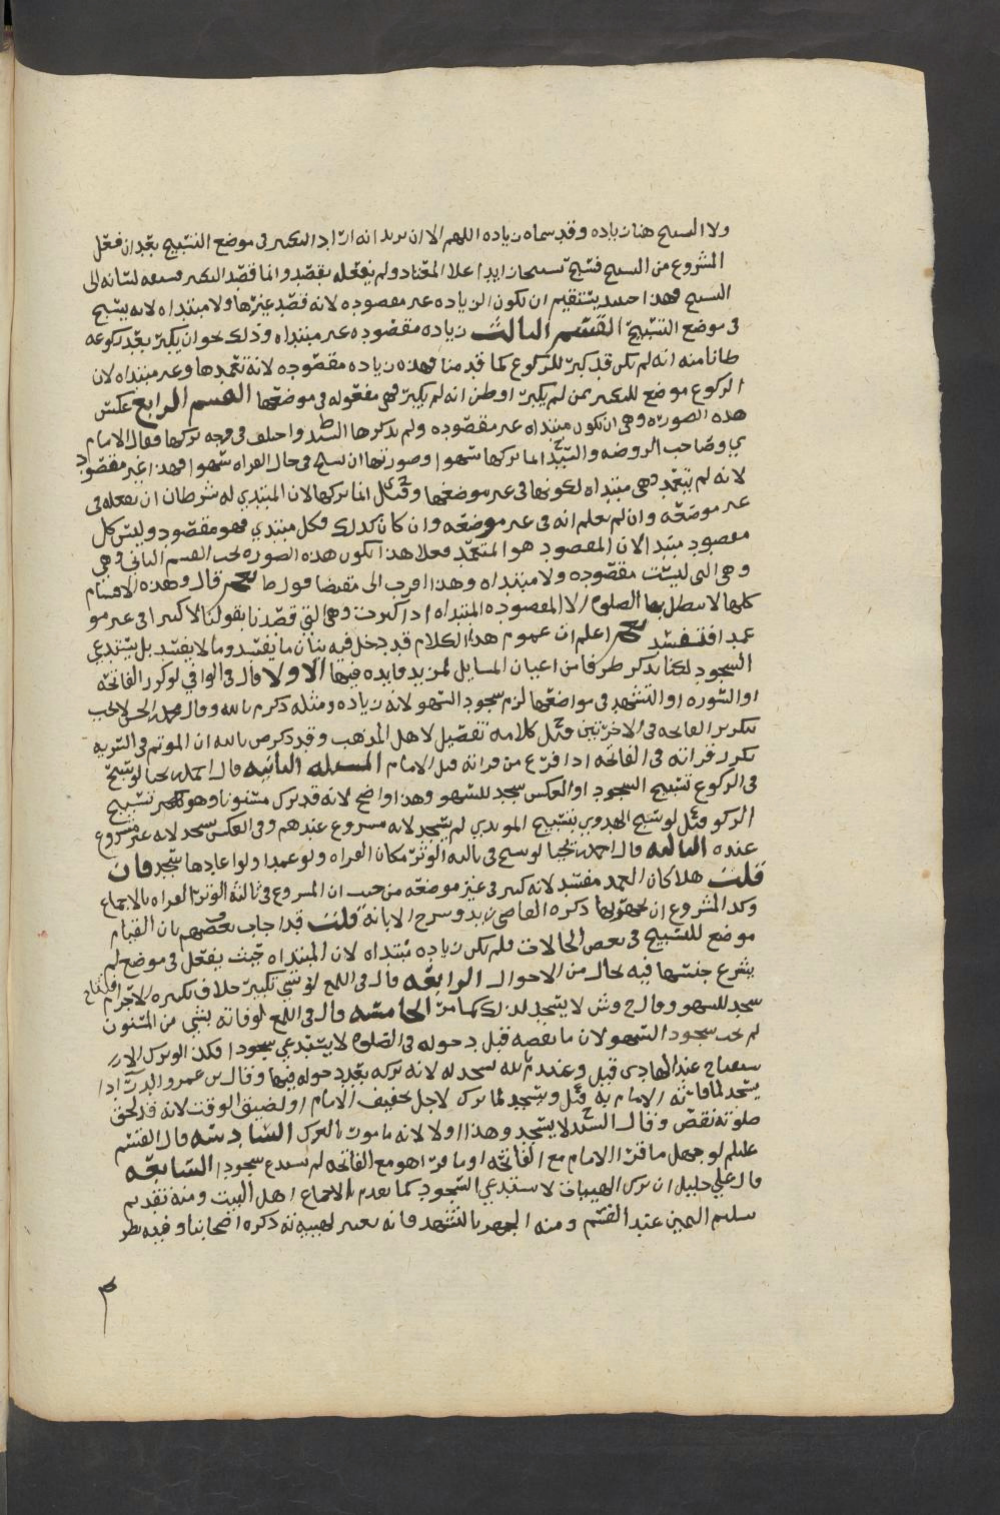 ولا التسبيح هنا زياده وقد سماه زياده اللهم الا ان يريد انه اراد التكبير في موضع التسبيح بعد ان فعل
المشروع من التسبيح فسبح تسبيحا زايدا علا المعتاد ولم يفعله بقصد وانما قصد التكبير فسبقه لسانه الى
التسبيح وهذا حينئذ يستقيم ان تكون الزياده غير مقصوده لانه قصد غيرها ولا مبتداه لانه يسبح
في موضع التسبيح القسم الثالث زياده مقصوده غير مبتداه وذلك نحو ان يكبر بعد ركوعه
ظانا منه انه لم يكن قد كبر للركوع كما قدمنا فهذه زياده مقصوده لانه تعمدها وغير مبتداه لان
الركوع موضع للتكبير ممن لم يكبر او ظن انه لم يكبر فهي مفعوله في موضعها القسم الرابع عكس
هذه الصوره وهي ان تكون مبتداه غير مقصوده ولم يذكرها السيد واختلف في وجه تركها فقال الامام
ي وصاحب الروضه والسيد انما تركها سهوا وصورتها ان يسلم في حال القراه سهوا فهذا غير مقصود
لانه لم يتعمد وهي مبتداه لكونها في غير موضعها وقيل انما تركها لان المبتدي له شرطان ان يفعله في
غير موضعه وان لم يعلم انه في غير موضعه وان كان كذلك فكل مبتدي فهو مقصود وليس كل
مقصود مبتدا لان المقصود هو المتعمد فعلا هذا تكون هذه الصوره تحت القسم الثاني وهي
وهي التي ليست مقصوده ولا مبتداه وهذا اقرب الى مقتضا قول ط قال وهذه الاقسام
كلها لا تبطل بها الصلوه الا المقصوده المبتداه اذا كثرت وهي التي قصدنا بقولنا الا كثيرا في غير مو
عمدا فتفسد اعلم ان عموم هذا الكلام قد دخل فيه بيان ما يفسد وما لا يفسد بل يستدعي
السجود لكنا نذكر طرفا من اعيان المسايل لمزيد فايده فيها الاولا قال في الوافي لو كرر الفاتحه
او السوره او التشهد في مواضعها لزم سجود السهو لانه زياده ومثله ذكر م بالله وقال محمد بن الحسن لا يجب
بتكرير الفاتحه في الاخرتين قيل كلامه تفصيل لاهل المذهب وقد ذكر ص بالله ان الموتم في السريه
يكرر قراته في الفاتحه اذا فرغ من قراته قبل الامام المسئله الثانيه قال احمد بن يحيا لو سبح
في الركوع تسبيح السجود او العكس سجد للسهو وهذا واضح لانه قد ترك مسنونا وهو تسبيح
الركو قيل لو سبح الهدوي بتسبيح المويدي لم يسجد لانه مشروع عندهم وفي العكس يسجد لانه غير مشروع
عنده الثالثه قال احمد بن يحيا لو سبح في ثالثه الوتر مكان القراه ولو عمدا ولو اعادها سجد فان
قلت هلا كان العمد مفسد لانه كثير في غير موضعه من حيث ان المشروع في ثالثه الوتر القراه بالاجماع
وكذا المشروع ان ذكره القاضي زيد وشرح الابانه قلت قد اجاب بعضهم بان القيام
موضع للتسبيح في بعض الحالات فلم تكن زياده مبتداه لان المبتداه حيث يفعل في موضع لم
يشرع جنسها فيه بحال من الاحوال الرابعه قال في اللمع لو نسي تكبير خلاف تكبيره الاحرام
سجد للسهو وقال ح وش لا يسجد لذلك كما مر الخامسه قال في اللمع لو فاته بشي من المسنون
لم يجب سجود السهو لان ما نقصه قبل دخوله في الصلوه لا يستدعي سجودا فكذا لو ترك الا
ستفتاح عند الهادي قيل وعند م بالله يسجد له لانه تركه بعد دخوله فيها وقال بن عمرو
يسجد لما فاته الامام به قيل ويسجد لما ترك لاجل تخفيف الامام او لضيق الوقت لانه قد لحق
صلوته نقص وقال السيد لا يسجد وهذا اولا لانه مامور بالترك السادسه قال القسم
عليلم لو جهل ما قرا الامام مع الفاتحه او ما قرا هو مع الفاتحه لم يستدع سجودا السابعه
قال علي خليل ان ترك الهييات لا يستدعي السجود كما تقدم بالاجماع اهل البيت ومنه تقديم
تسليم اليمين عند القسم ومنه الجهر بالتشهد فانه تغيير لهيئته ذكره اصحابنا وفيه نظر